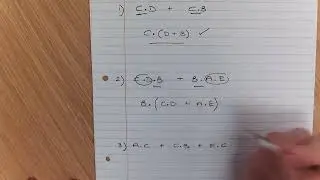 1) C.D + C.B
C.(D+B) ✓
2) C.D.B + B.A.E
B.(C.D + A.E)
3) A.C + C.B + E.C